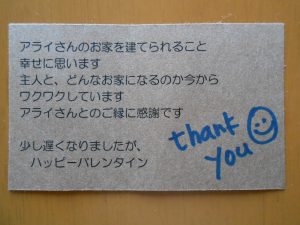 アライさんのお家を建てられること
幸せに思います
主人と、どんなお家になるのか今から
ワクワクしています
アライさんとのご縁に感謝です
少し遅くなりましたが、
ハッピーバレンタイン
thank
you